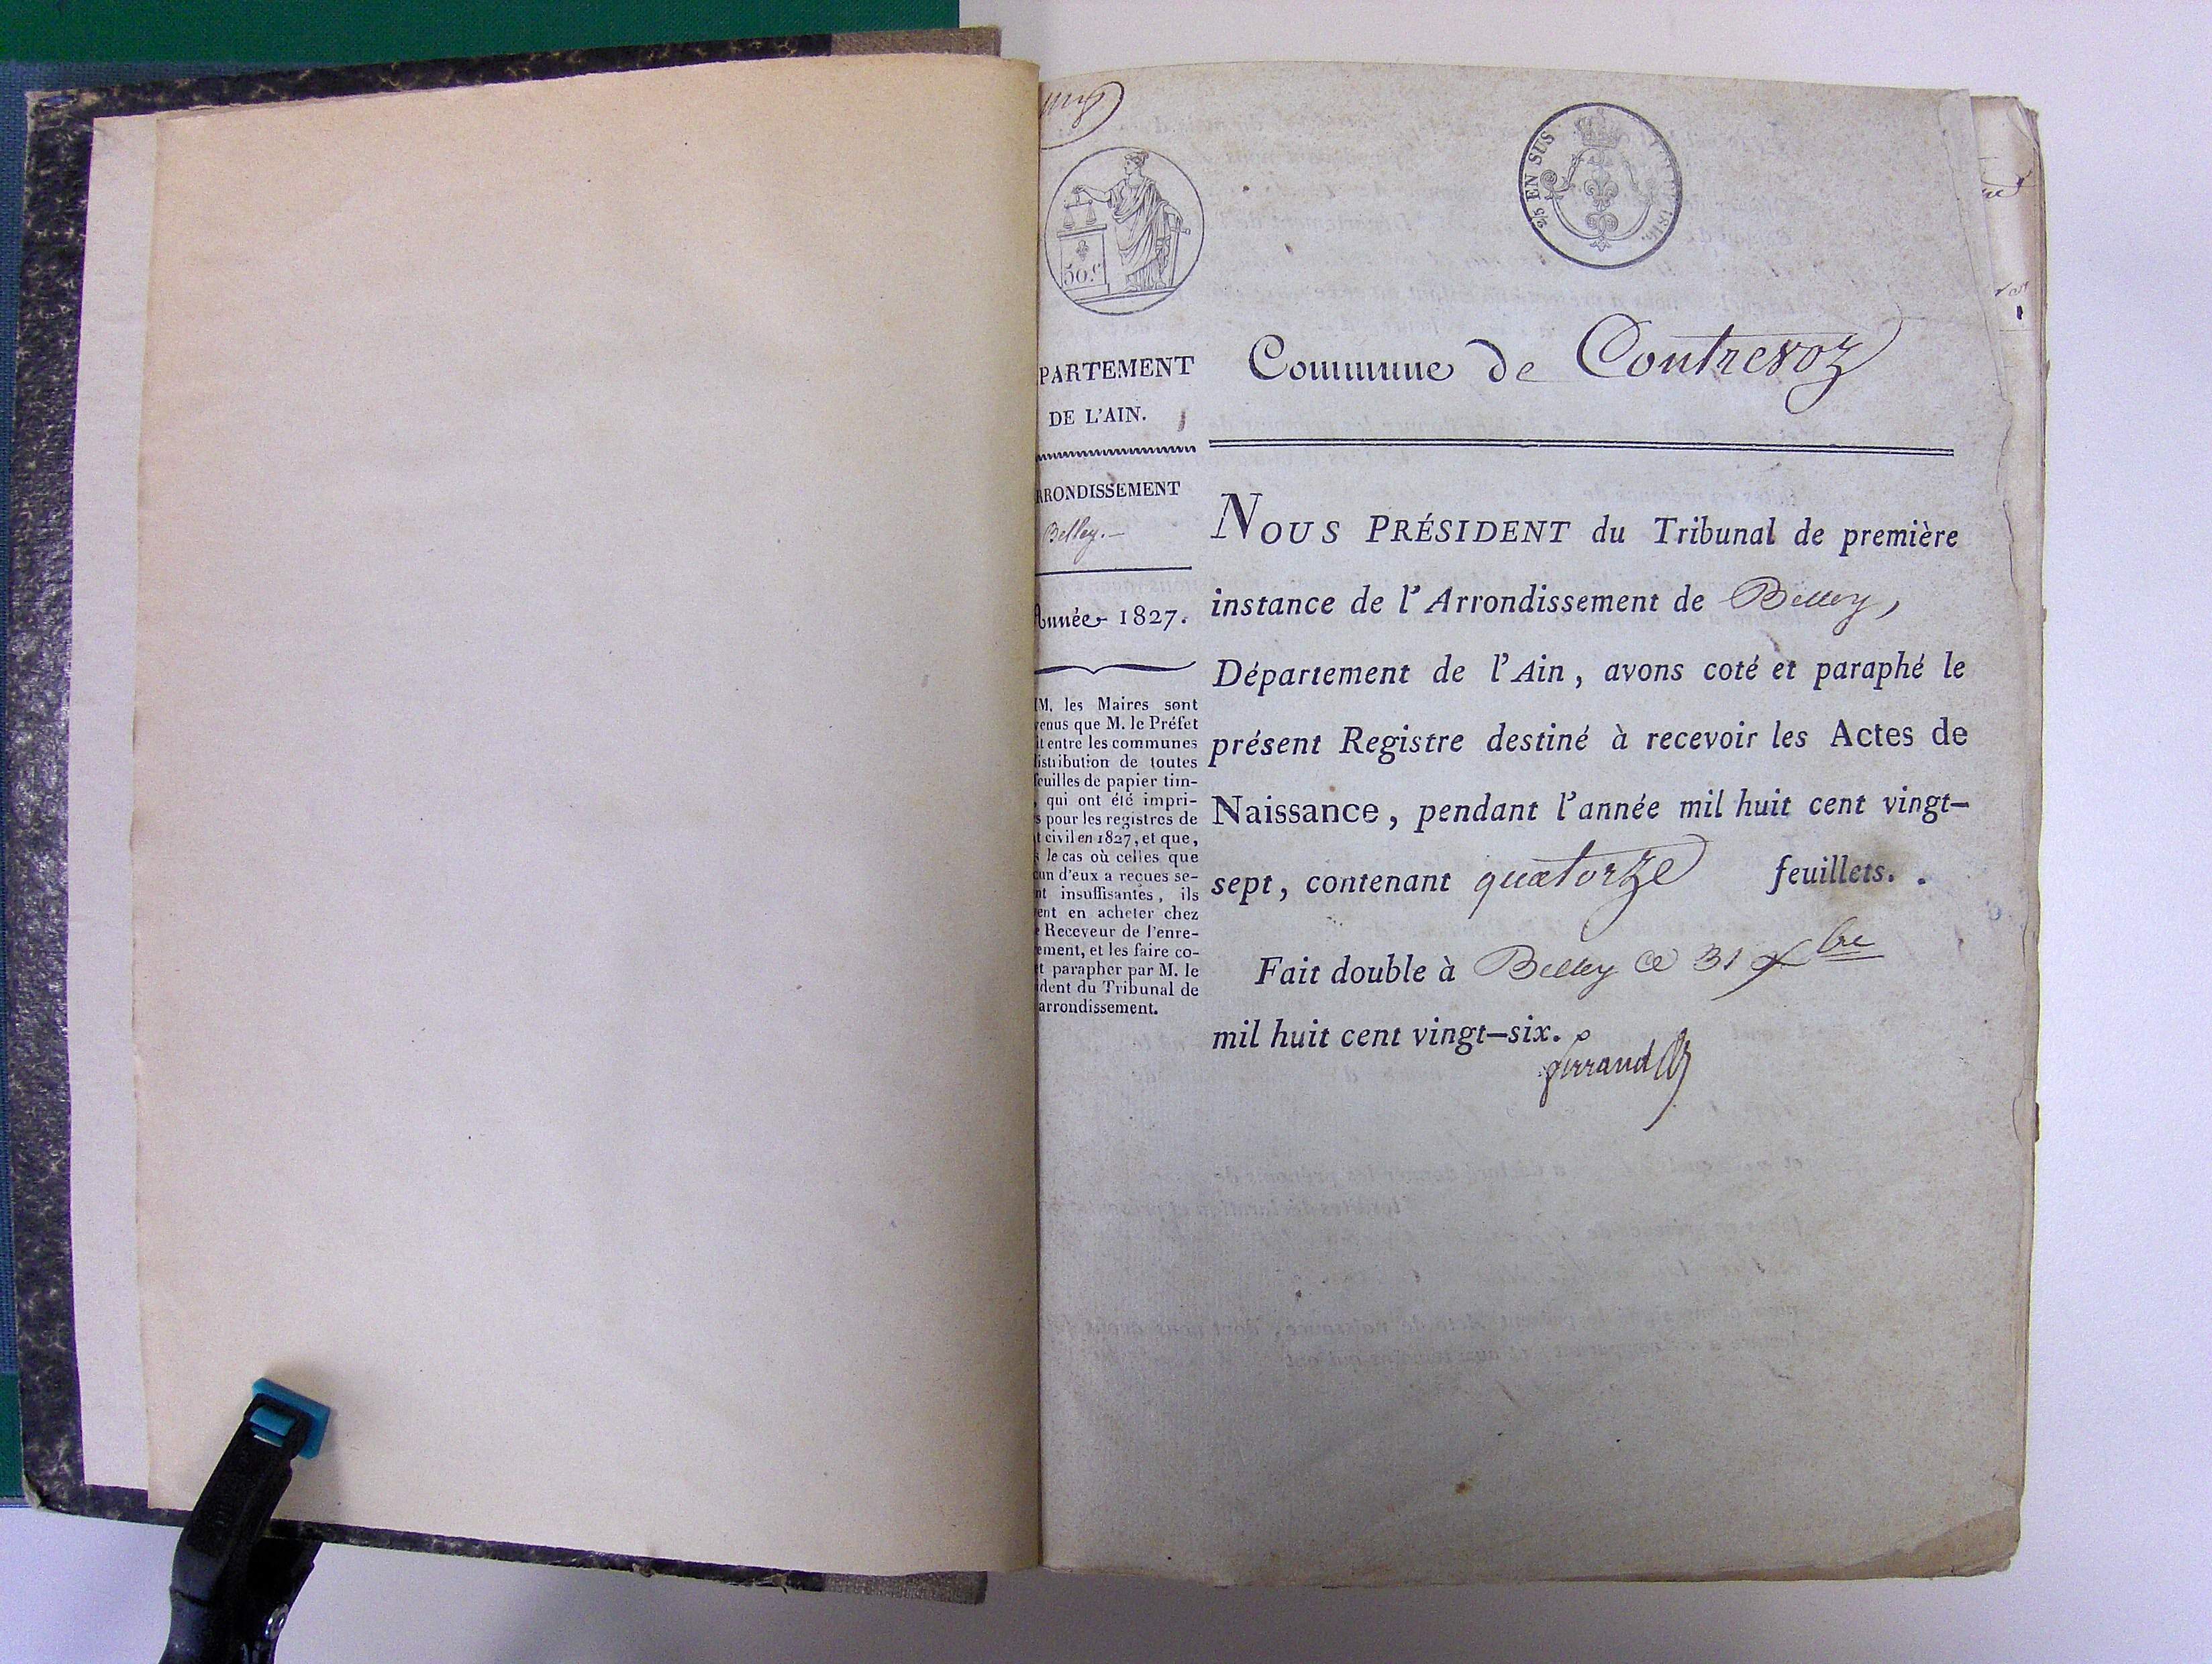 50.c
25 EN SUS
1816.
PARTEMENT
DE L'AIN.
RRONDISSEMENT
Belley.
Année 1827.
M. les Maires sont
venus que M. le Préfet
it entre les communes
istribution de toutes
feuilles de papier tim-
, qui ont été impri-
s pour les registres de
t civil en 1827, et que,
s le cas où celles que
cun d'eux a reçues se-
nt insuffisantes, ils
vent en acheter chez
e Receveur de l'enre-
ement, et les faire co-
t parapher par M. le
ident du Tribunal de
arrondissement.
Commune de Contrevoz
NOUS PRÉSIDENT du Tribunal de première
instance de l'Arrondissement de Belley,
Département de l'Ain, avons coté et paraphé le
présent Registre destiné à recevoir les Actes de
Naissance, pendant l'année mil huit cent vingt-
sept, contenant quatorze feuillets.
Fait double à Belley ce 31 xbre
mil huit cent vingt-six.
ferrand